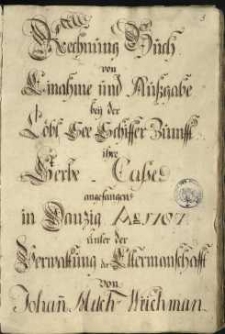 5
Rechnung Buch
von
Einahme und Außgabe
bey der
Löbl See Schiffer Zunfft
ihre
Sterbe Casse
angefangen
in Danzig A 1707
unter der
Verwaltung der Eltermanschafft
von
Johañ